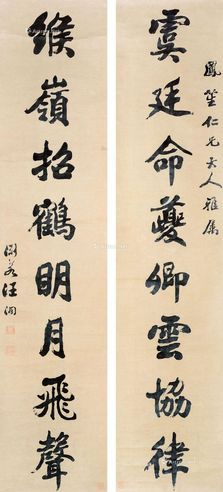 鳳笙仁兄大人雅屬
虞廷命夔卿雲協律
緱嶺招鶴明月飛聲
汪洵